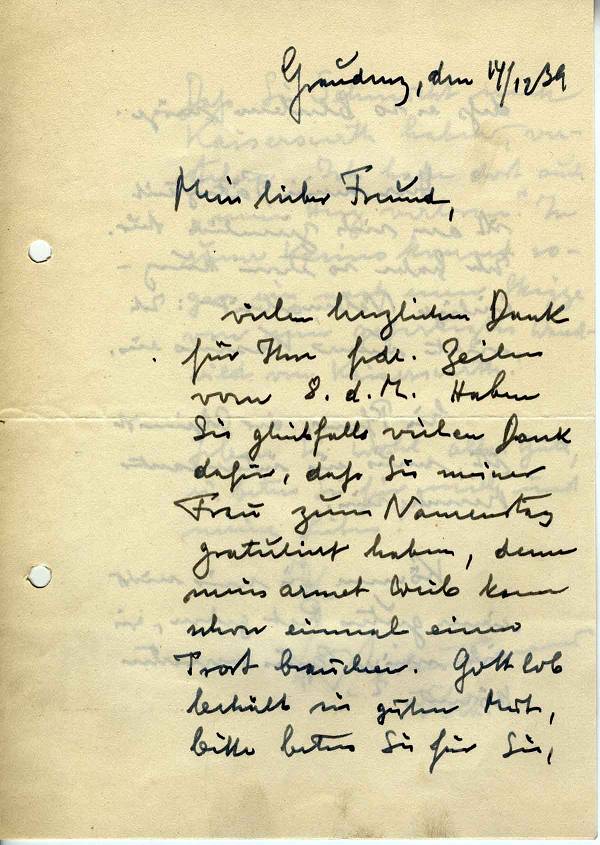 Graudenz, den 14/12 39
Mein lieber Freund,
vielen herzlichen Dank
für Ihre frdl. Zeilen
vom 8. d. M. Haben
Sie gleichfalls vielen Dank
dafür, daß Sie meiner
Frau zum Namenstag
gratuliert haben, denn
mein armes Weib kann
schon einmal einen
Trost brauchen. Gottlob
behält sie guten Mut,
bitte beten Sie für Sie,